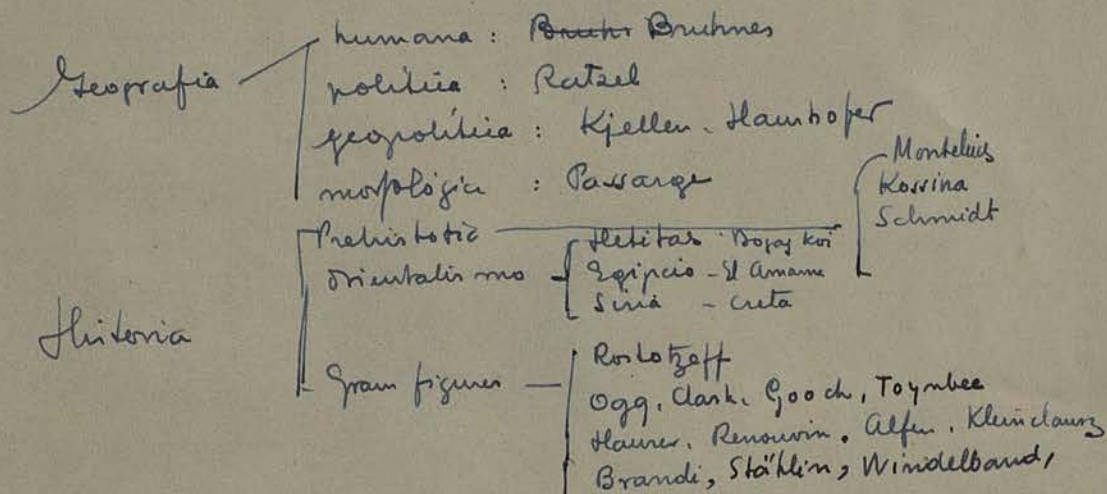 Geografia
humana : Bruhn Bruhnes
política : Ratzel
geopolítica : Kjellen. Haushofer
morfológica : Passarge
Historia
Prehistoric
Montelius
Kossina
Schmidt
orientalismo
Hetitas Bogaz Koi
Egipcio - El Amarna
Siria - Creta
Gram figures
Rostotzeff
Ogg, Clark, Gooch, Toynbee
Hauser, Renouvin, Alfen, Kleinclausz
Brandi, Stählin, Windelband,